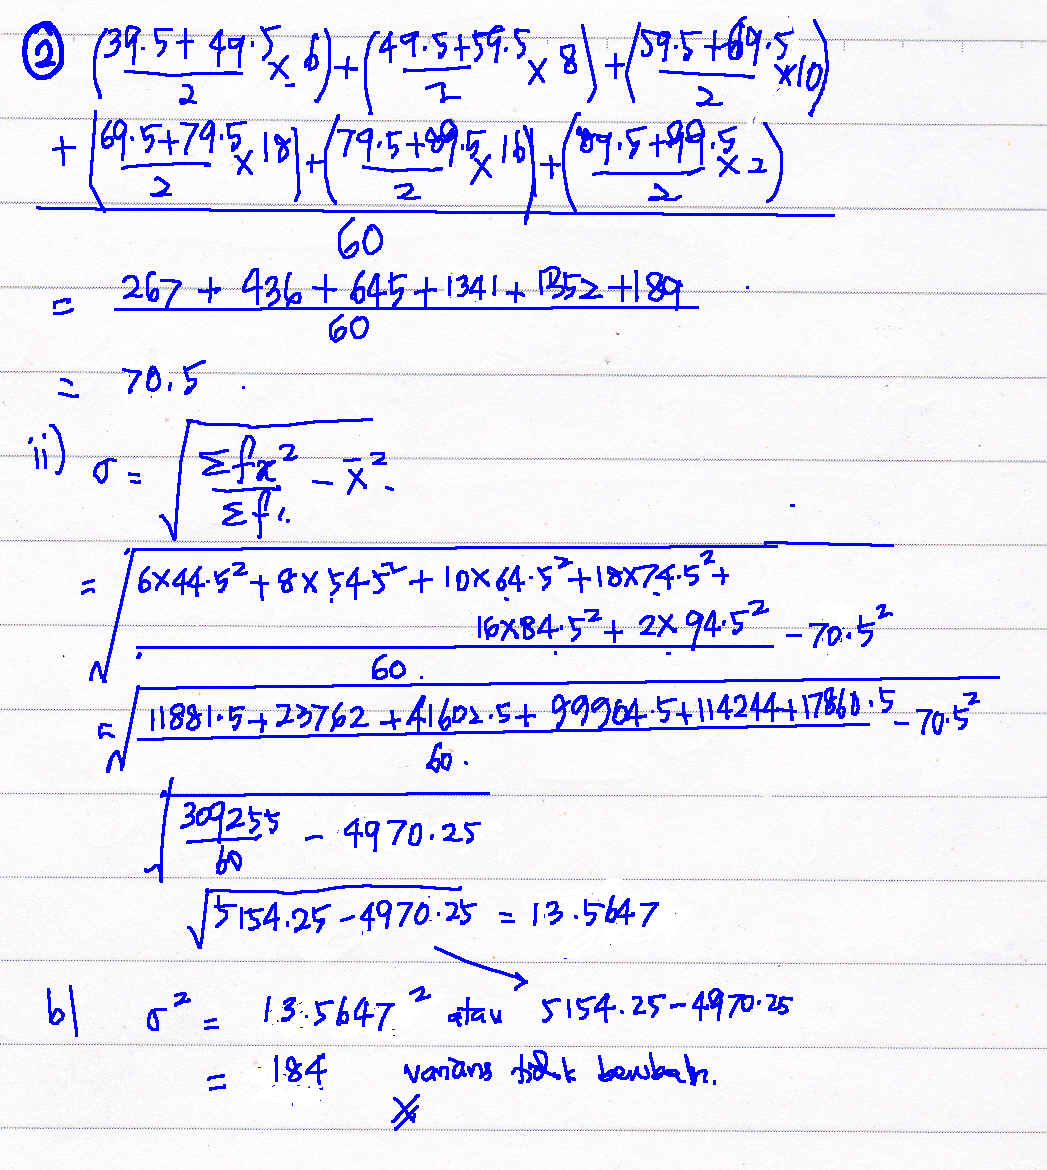 ② (39.5+49.5/2 × 6) + (49.5+59.5/2 × 8) + (59.5+69.5/2 ×10)
+ (69.5+79.5/2 × 18) + (79.5+89.5/2 × 16) + (89.5+99.5/2 × 2)
60
= 267 + 436 + 645 + 1341 + 1352 + 189
60
= 70.5
ii) σ = √(Σfx²/Σf - x̄²)
= √ 6×44.5² + 8×54.5² + 10×64.5² + 18×74.5² +
16×84.5² + 2×94.5² - 70.5²
60
= √ 11881.5 + 23762 + 41602.5 + 99904.5 + 114244 + 17860.5 - 70.5²
60
√(309255/60 - 4970.25)
√(5154.25 - 4970.25) = 13.5647
b) σ² = 13.5647² atau 5154.25-4970.25
= 184 varians tidak berubah.